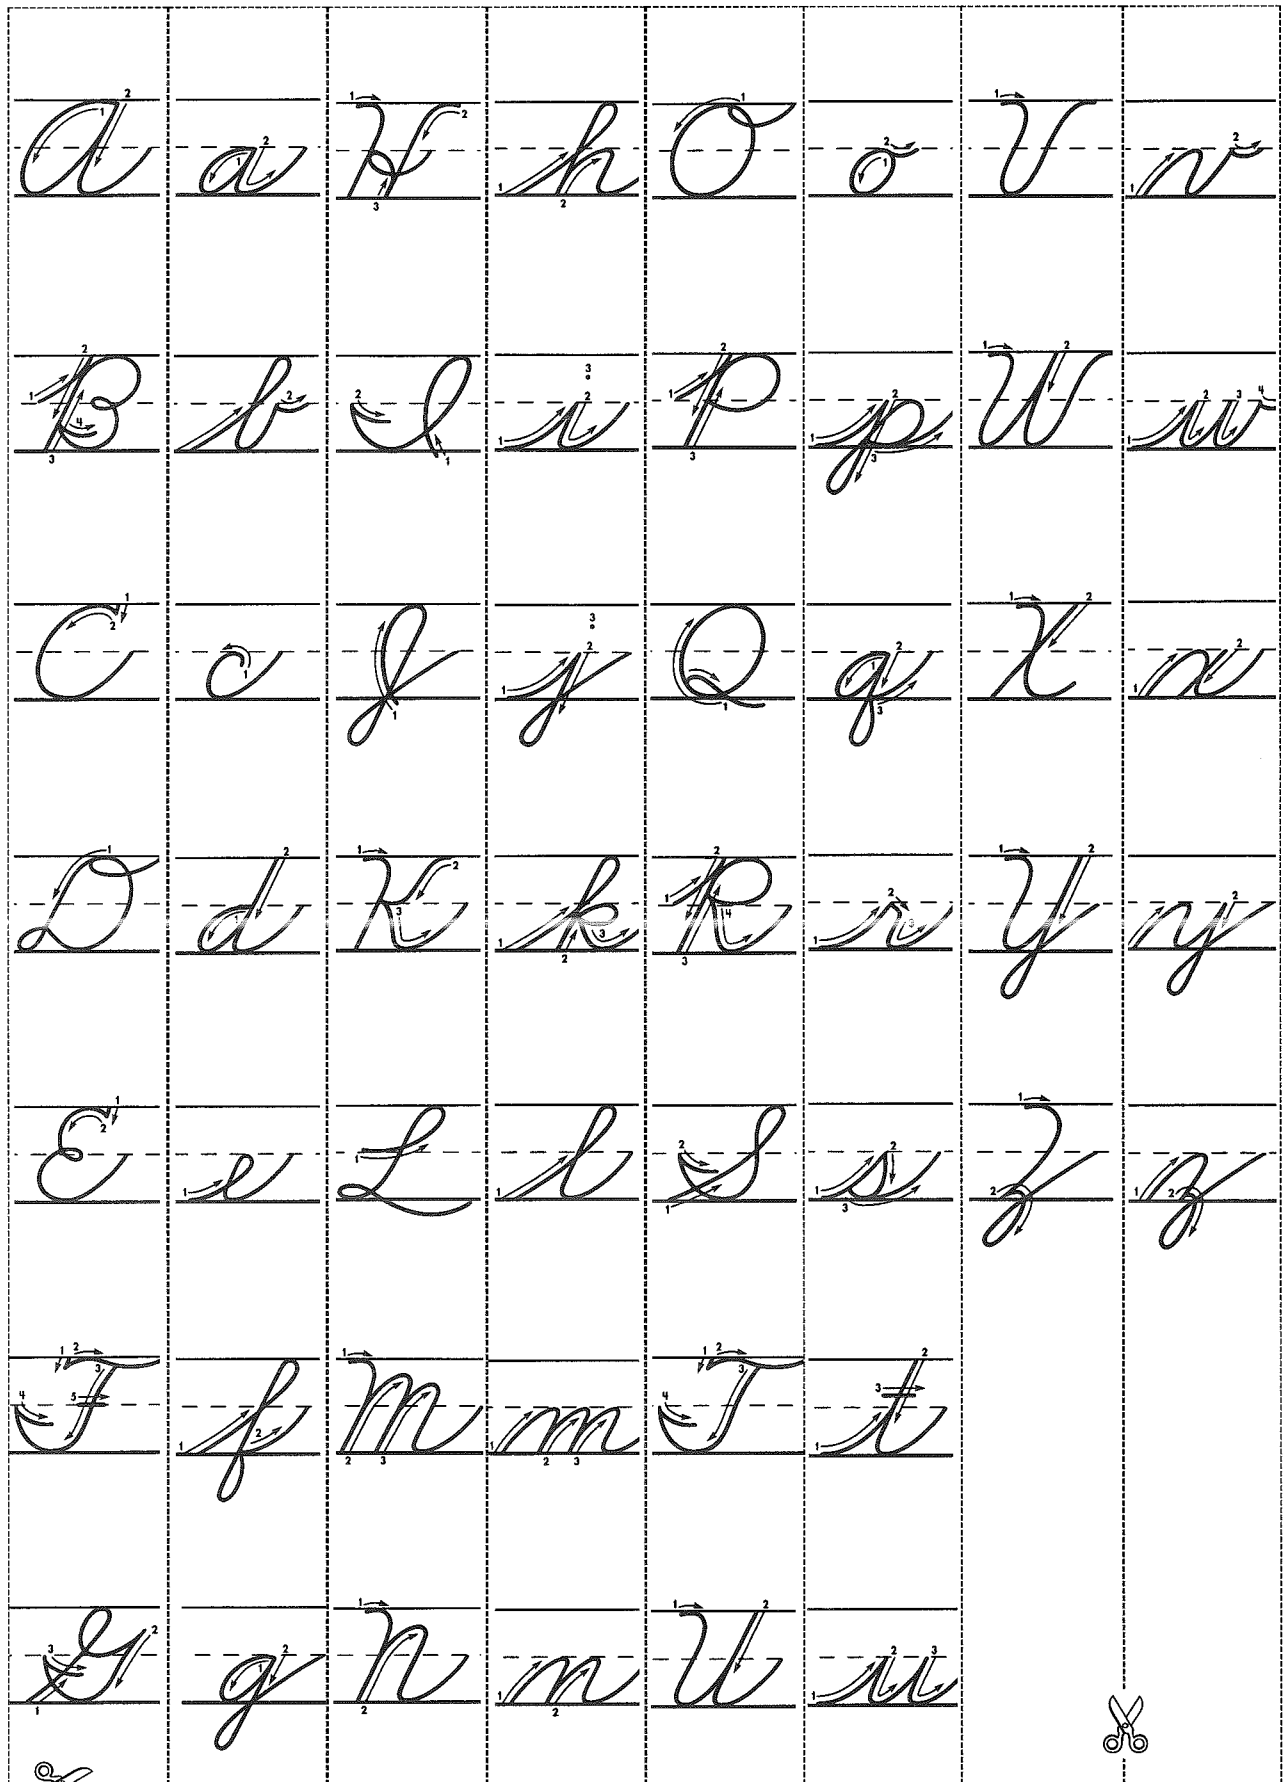 A a H h O o V v
B b I i P p W w
C c J j Q q X x
D d K k R r Y y
E e L l S s Z z
F f M m T t
G g N n U u